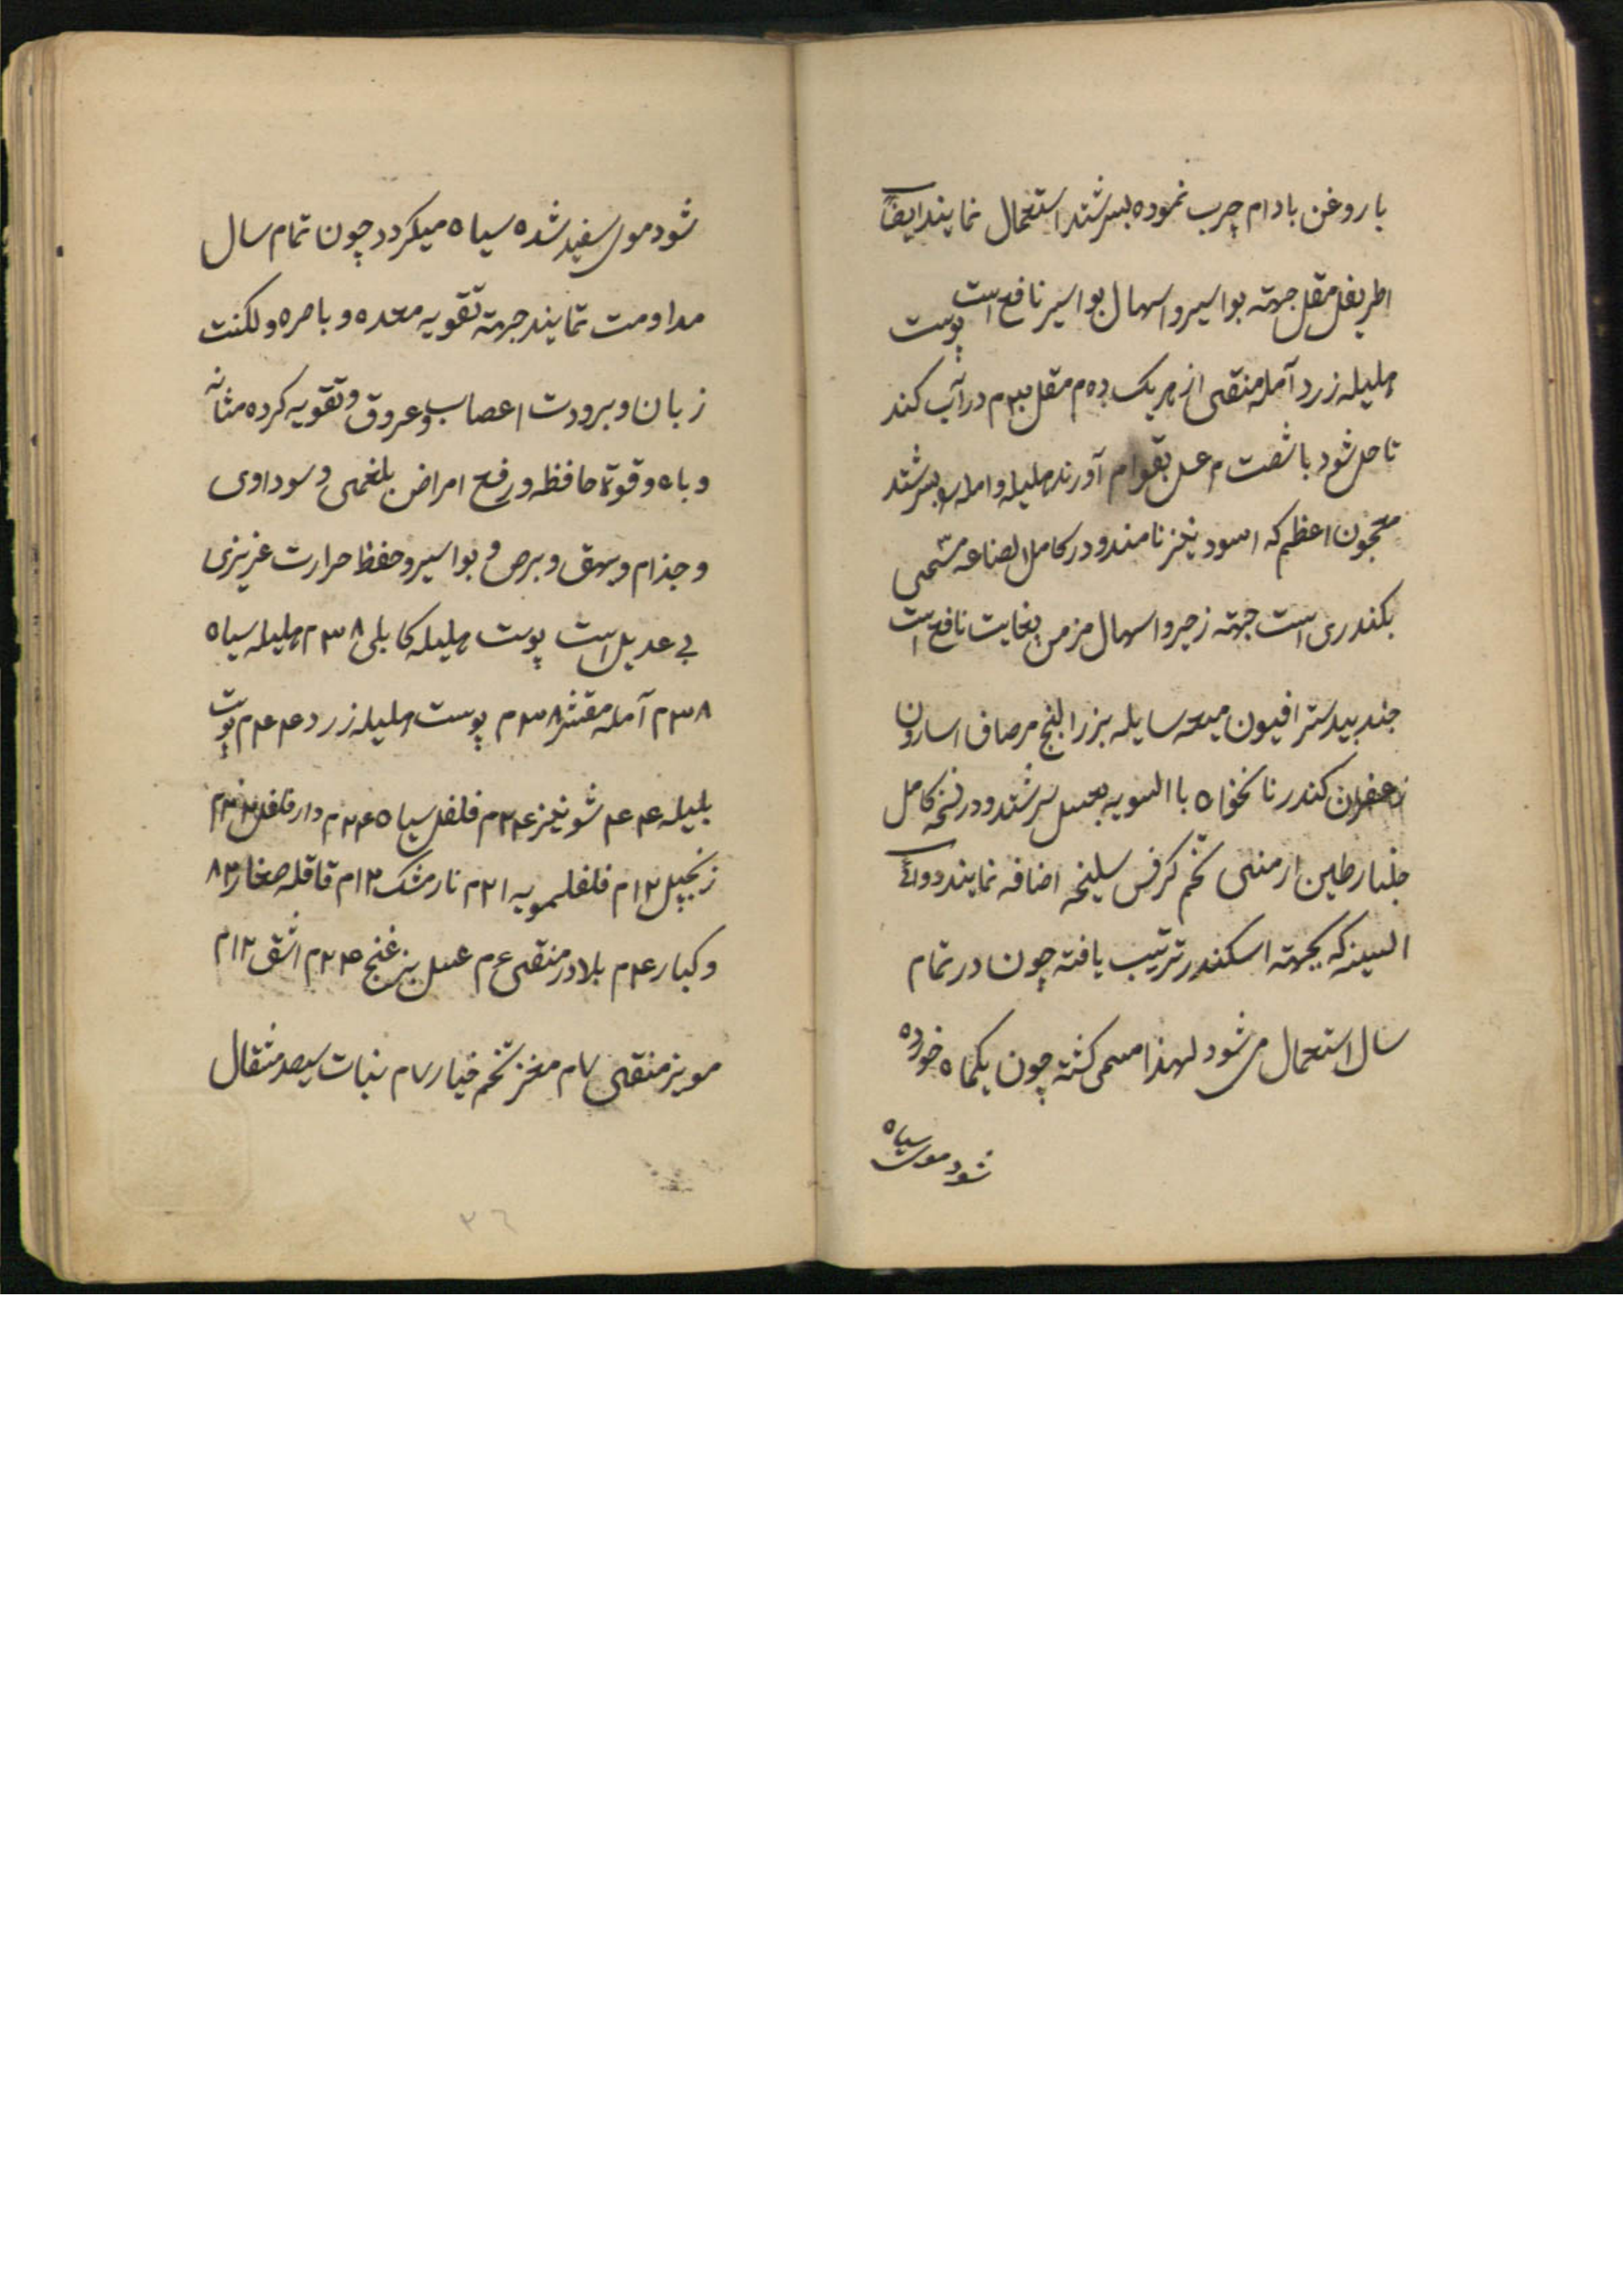 با روغن بادام چرب نموده بسرشند استعمال نمایند ایضاً
اطریفل مقل جهته بواسیر و اسهال بواسیر نافع است پوست
هلیله زرد آمله منقی از هر یک ده م مقل م در آب کند
تا حل شود با شصت م عسل بقوام آورند هلیله و امله بسرشند
معجون اعظم که اسود نامند و در کامل الصناعه مسمی
بکندری است جهته زحیر و اسهال مزمن بغایت نافع است
جندبیدستر افیون میعه سایله بزرالبنج مرصاف اسارون
زعفران کندر نانخواه باالسویه بعسل بسرشند و در نسخه کامل
جلنار طین ارمنی تخم کرفس سلیخه اضافه نمایند دوائے
السینه که بجهته اسکندر ترتیب یافته چون در تمام
سال استعمال می شود لهذا مسمی کشته چون یکماه خورده
شود موی سیاه
شود موی سفید شده سیاه میکردد چون تمام سال
مداومت نمایند جهته تقویه معده و باصره و لکنت
زبان و برودت اعصاب و عروق و تقویه کرده مثانه
و باه و قوة حافظه و رفع امراض بلغمی و سوداوی
و جذام و بهق و برص و بواسیر و حفظ حرارت غریزی
بی عدیل است پوست هلیله کابلی ۳۸ م هلیله سیاه
۳۸ م آمله مقشر ۳۸ م پوست هلیله زرد ۲۴ م پوست
بلیله ۲۴ شونیز ۲۴ م فلفل سیاه ۲۴ م دارفلفل م
زنجبیل ۱۲ م فلفلمویه ۱۲ م نارمشک ۱۲ م قاقله صغار
و کبار ۲۴ م بلادر منقی ۶ م عسل ۲۴ م اشق ۱۲ م
مویز منقی ۷ م مغز تخم خیار ۷ م نبات سیصد مثقال
۳۶